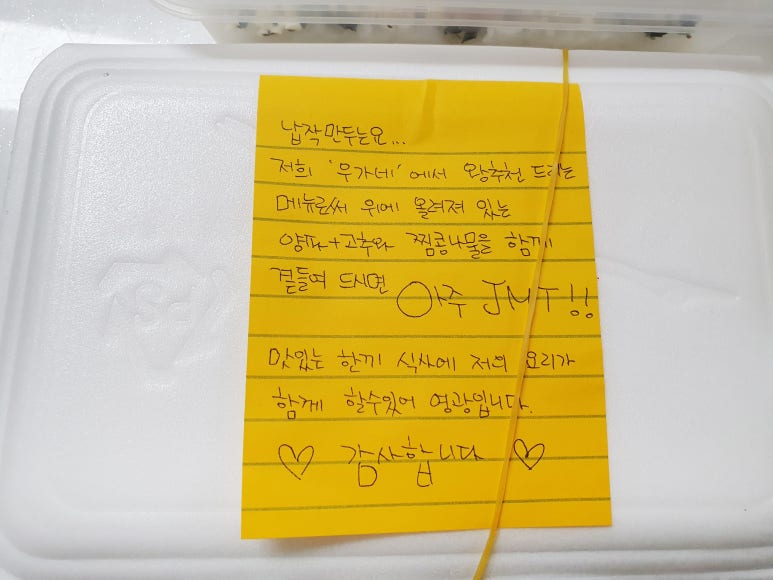 납작만두는요...
저희 '우가네'에서 왕추천 드리는
메뉴로써 위에 올려져 있는
양파+고추와 찜콩나물을 함께
곁들여 드시면 아주 JMT!!
맛있는 한끼 식사에 저의 요리가
함께 할수있어 영광입니다.
♡ 감사합니다 ♡